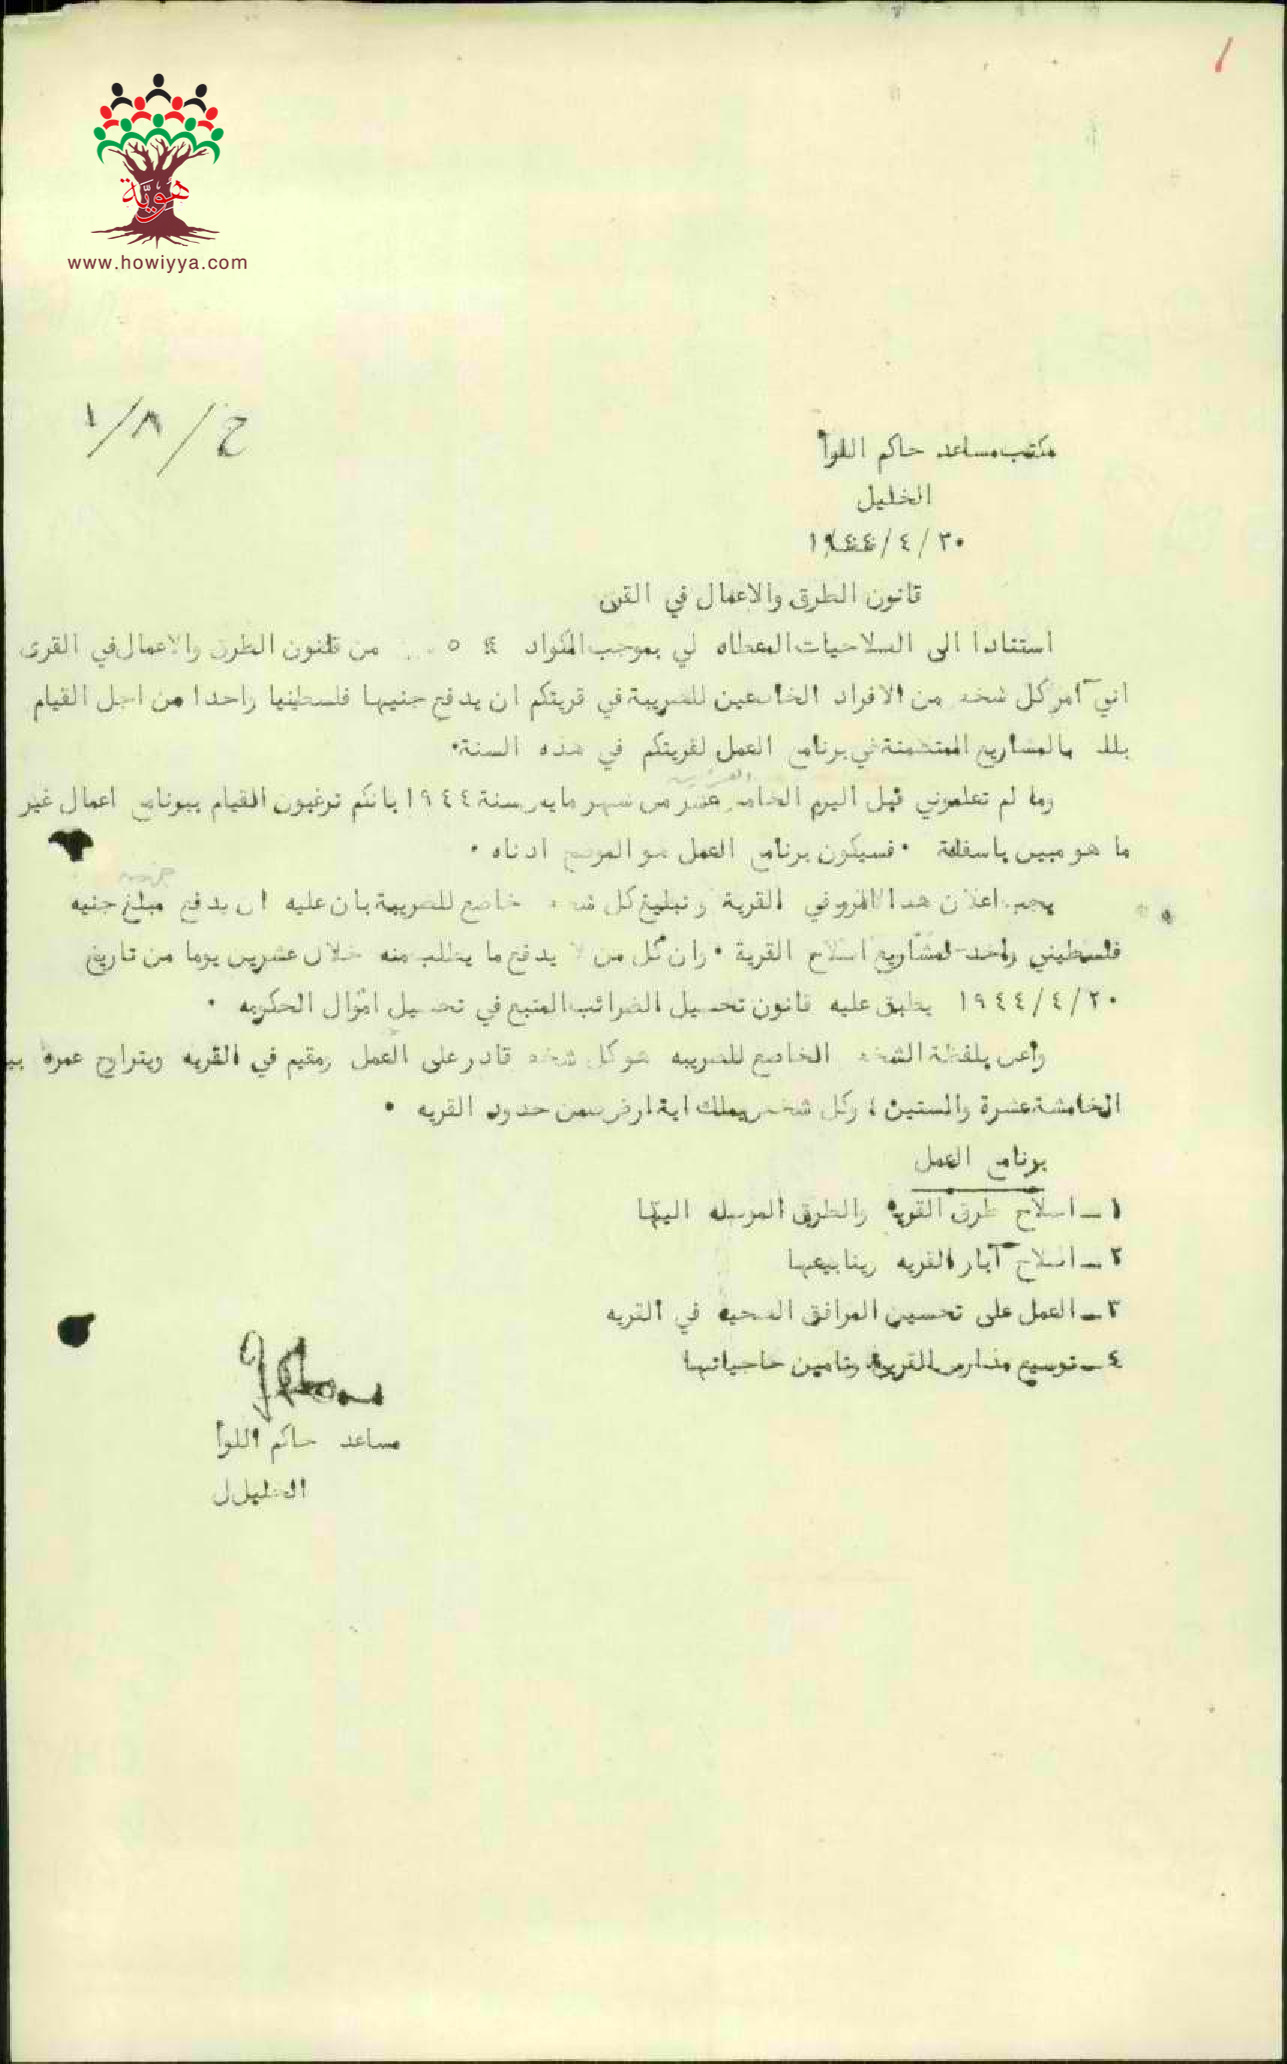 ١
هوية
www.howiyya.com
ح/٨/١
مكتب مساعد حاكم اللوآ
الخليل
٢٠/٤/١٩٤٤
قانون الطرق والاعمال في القرى
استنادا الى الصلاحيات المعطاه لي بموجب المواد ٤ ٥ من قانون الطرق والاعمال في القرى
اني آمر كل شخص من الافراد الخاضعين للضريبة في قريتكم ان يدفع جنيها فلسطينيا واحدا من اجل القيام
بالمشاريع المتضمنة في برنامج العمل لقريتكم في هذه السنة.
العشرين
وما لم تعلموني قبل اليوم الخامس عشر من شهر مايه سنة ١٩٤٤ بانكم ترغبون القيام ببرنامج اعمال غير
ما هو مبين باسفله . فسيكون برنامج العمل هو الموضح ادناه .
يجب اعلان هذا الامر في القرية وتبليغ كل شخص خاضع للضريبة بان عليه ان يدفع مبلغ جنيه
فلسطيني واحد لمشاريع اصلاح القرية . وان كل من لا يدفع ما يطلب منه خلال عشرين يوما من تاريخ
٢٠/٤/١٩٤٤ يطبق عليه قانون تحصيل الضرائب المتبع في تحصيل اموال الحكومه .
واعني بلفظة الشخص الخاضع للضريبه هو كل شخص قادر على العمل ومقيم في القريه ويتراوح عمره بين
الخامسة عشرة والستين ؛ وكل شخص يملك اية ارض ضمن حدود القريه .
برنامج العمل
١ــ اصلاح طرق القريه والطرق الموصله اليها
٢ــ اصلاح آبار القريه وينابيعها
٣ــ العمل على تحسين المرافق الصحيه في القريه
٤ــ توسيع مدارس القريه وتامين حاجياتها
مساعد حاكم اللوآ
الخليل